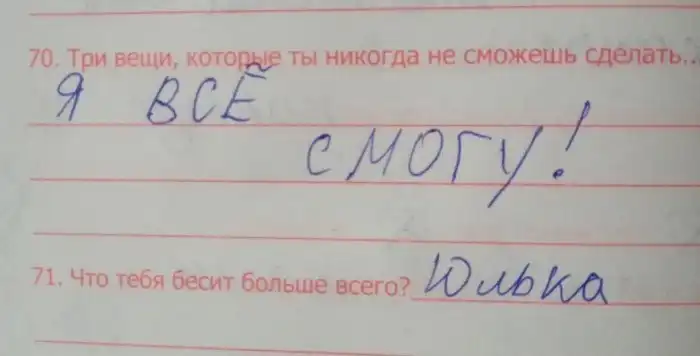 70. Три вещи, которые ты никогда не сможешь сделать...
Я ВСЁ
СМОГУ!
71. Что тебя бесит больше всего? Юлька